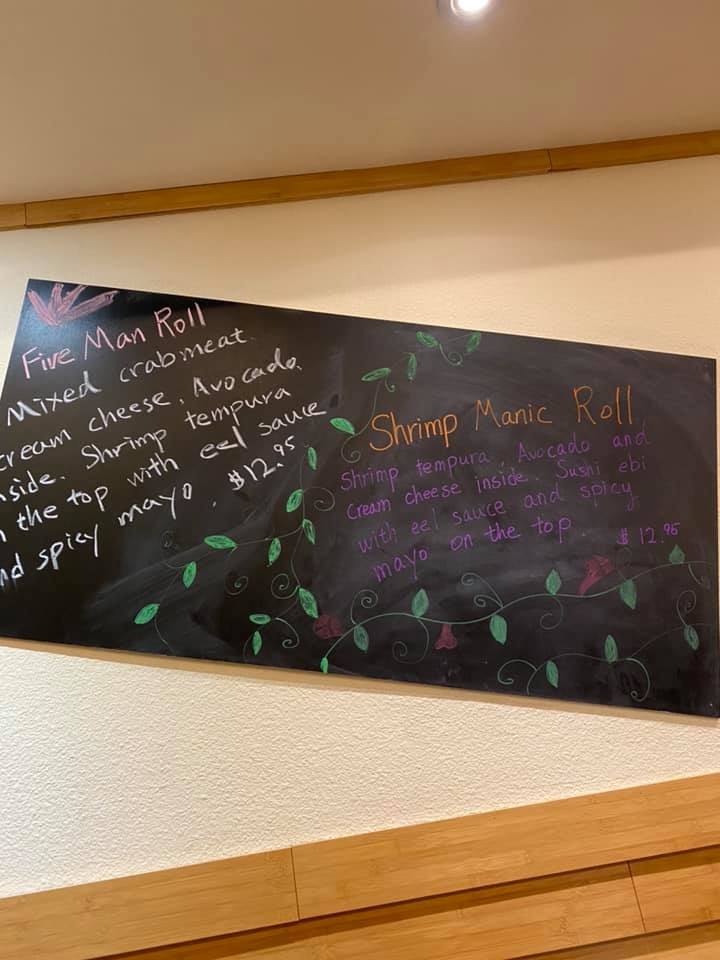 Five Man Roll
Mixed crabmeat.
cream cheese, Avocado.
side. Shrimp tempura
the top with eel sauce
nd spicy mayo. $12.95
Shrimp Manic Roll
Shrimp tempura, Avocado and
Cream cheese inside. Sushi ebi
with eel sauce and spicy
mayo on the top. $12.95